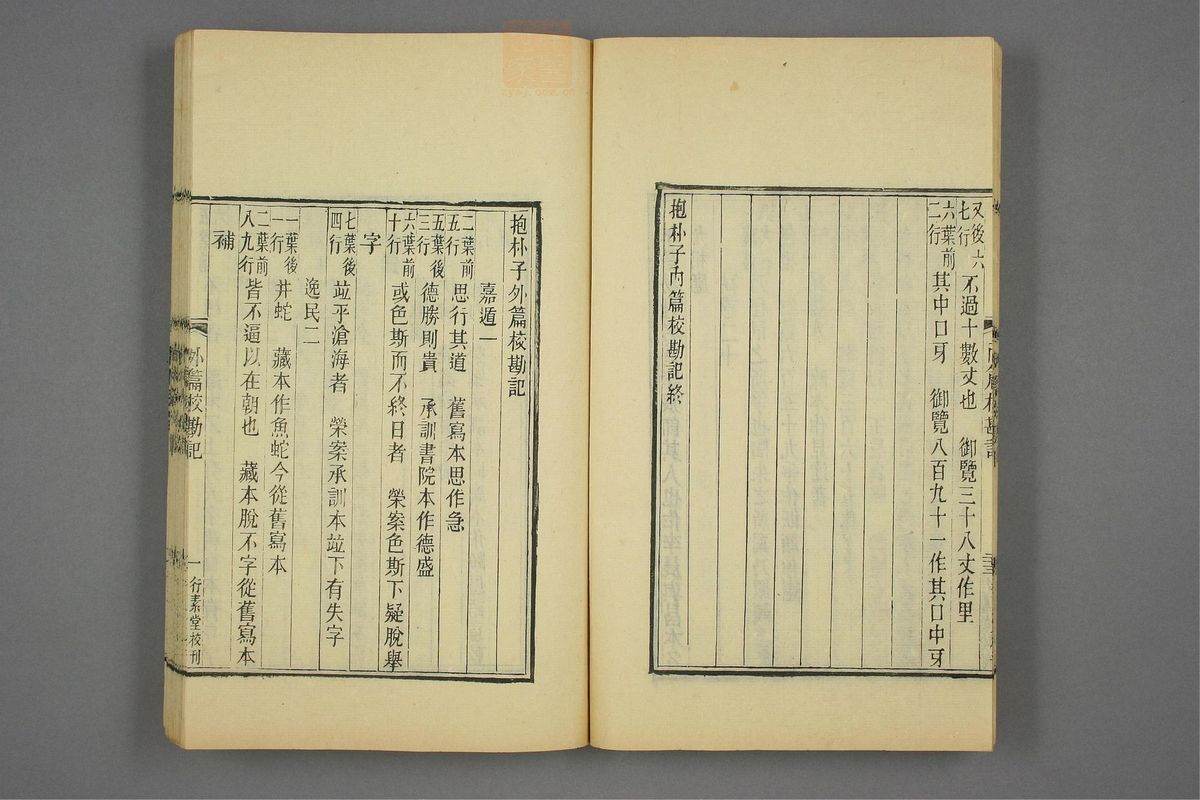 又後六七行 不過十數丈也 御覽三十八丈作里
六葉前二行 其中口牙 御覽八百九十一作其口中牙
抱朴子內篇校勘記終
抱朴子外篇校勘記
嘉遁一
二葉前五行 思行其道 舊寫本思作急
五葉後三行 德勝則貴 承訓書院本作德盛
六葉前十行 或色斯而不終日者 榮案色斯下疑脫舉
字
七葉後四行 竝乎滄海者 榮案承訓本竝下有失字
逸民二
一葉後一行 井蛇 藏本作魚蛇今從舊寫本
二葉前八九行 皆不逼以在朝也 藏本脫不字從舊寫本
補
外篇校勘記
一
行素堂校刊